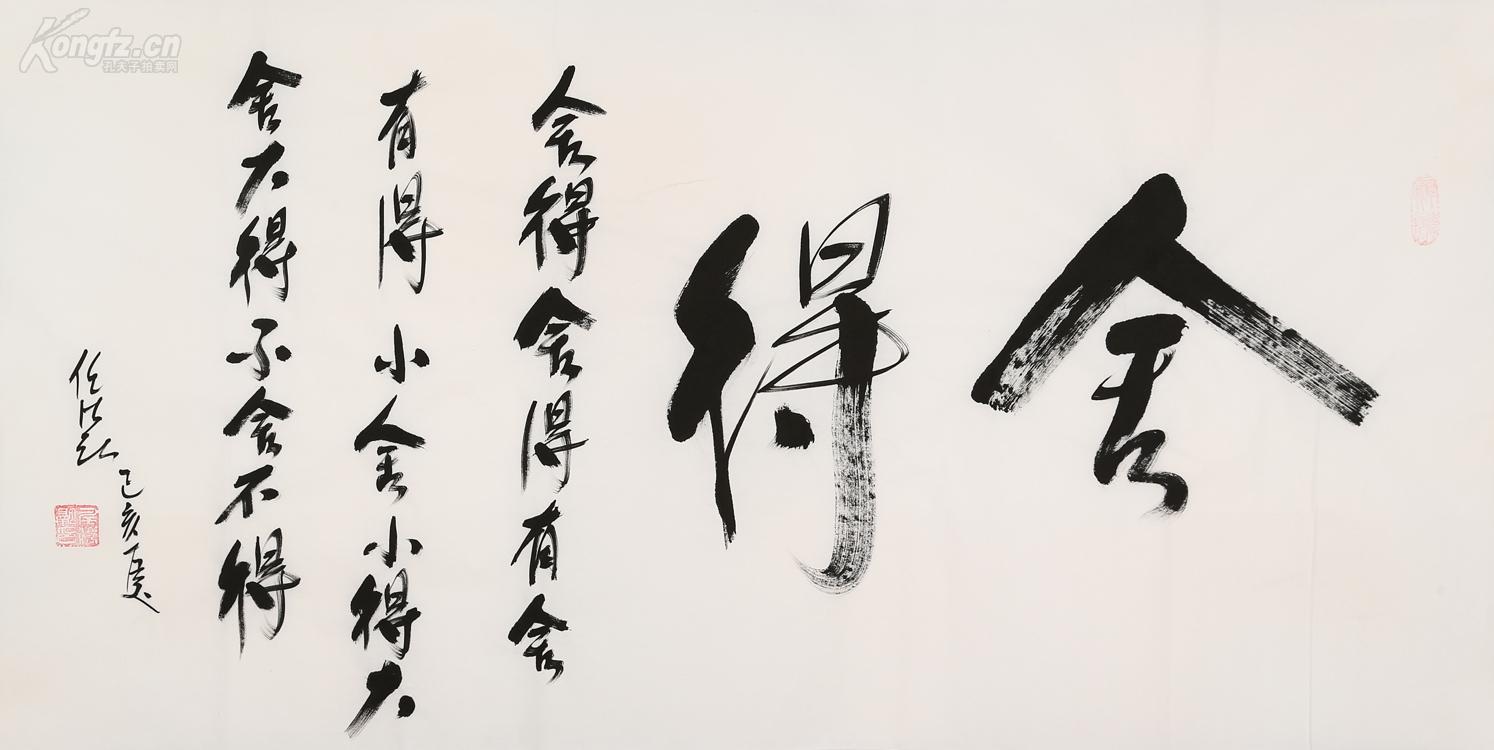 舍得
舍得舍得有舍
有得小舍小得大
舍大得不舍不得
己亥夏
Kongfz.cn
孔夫子拍卖网